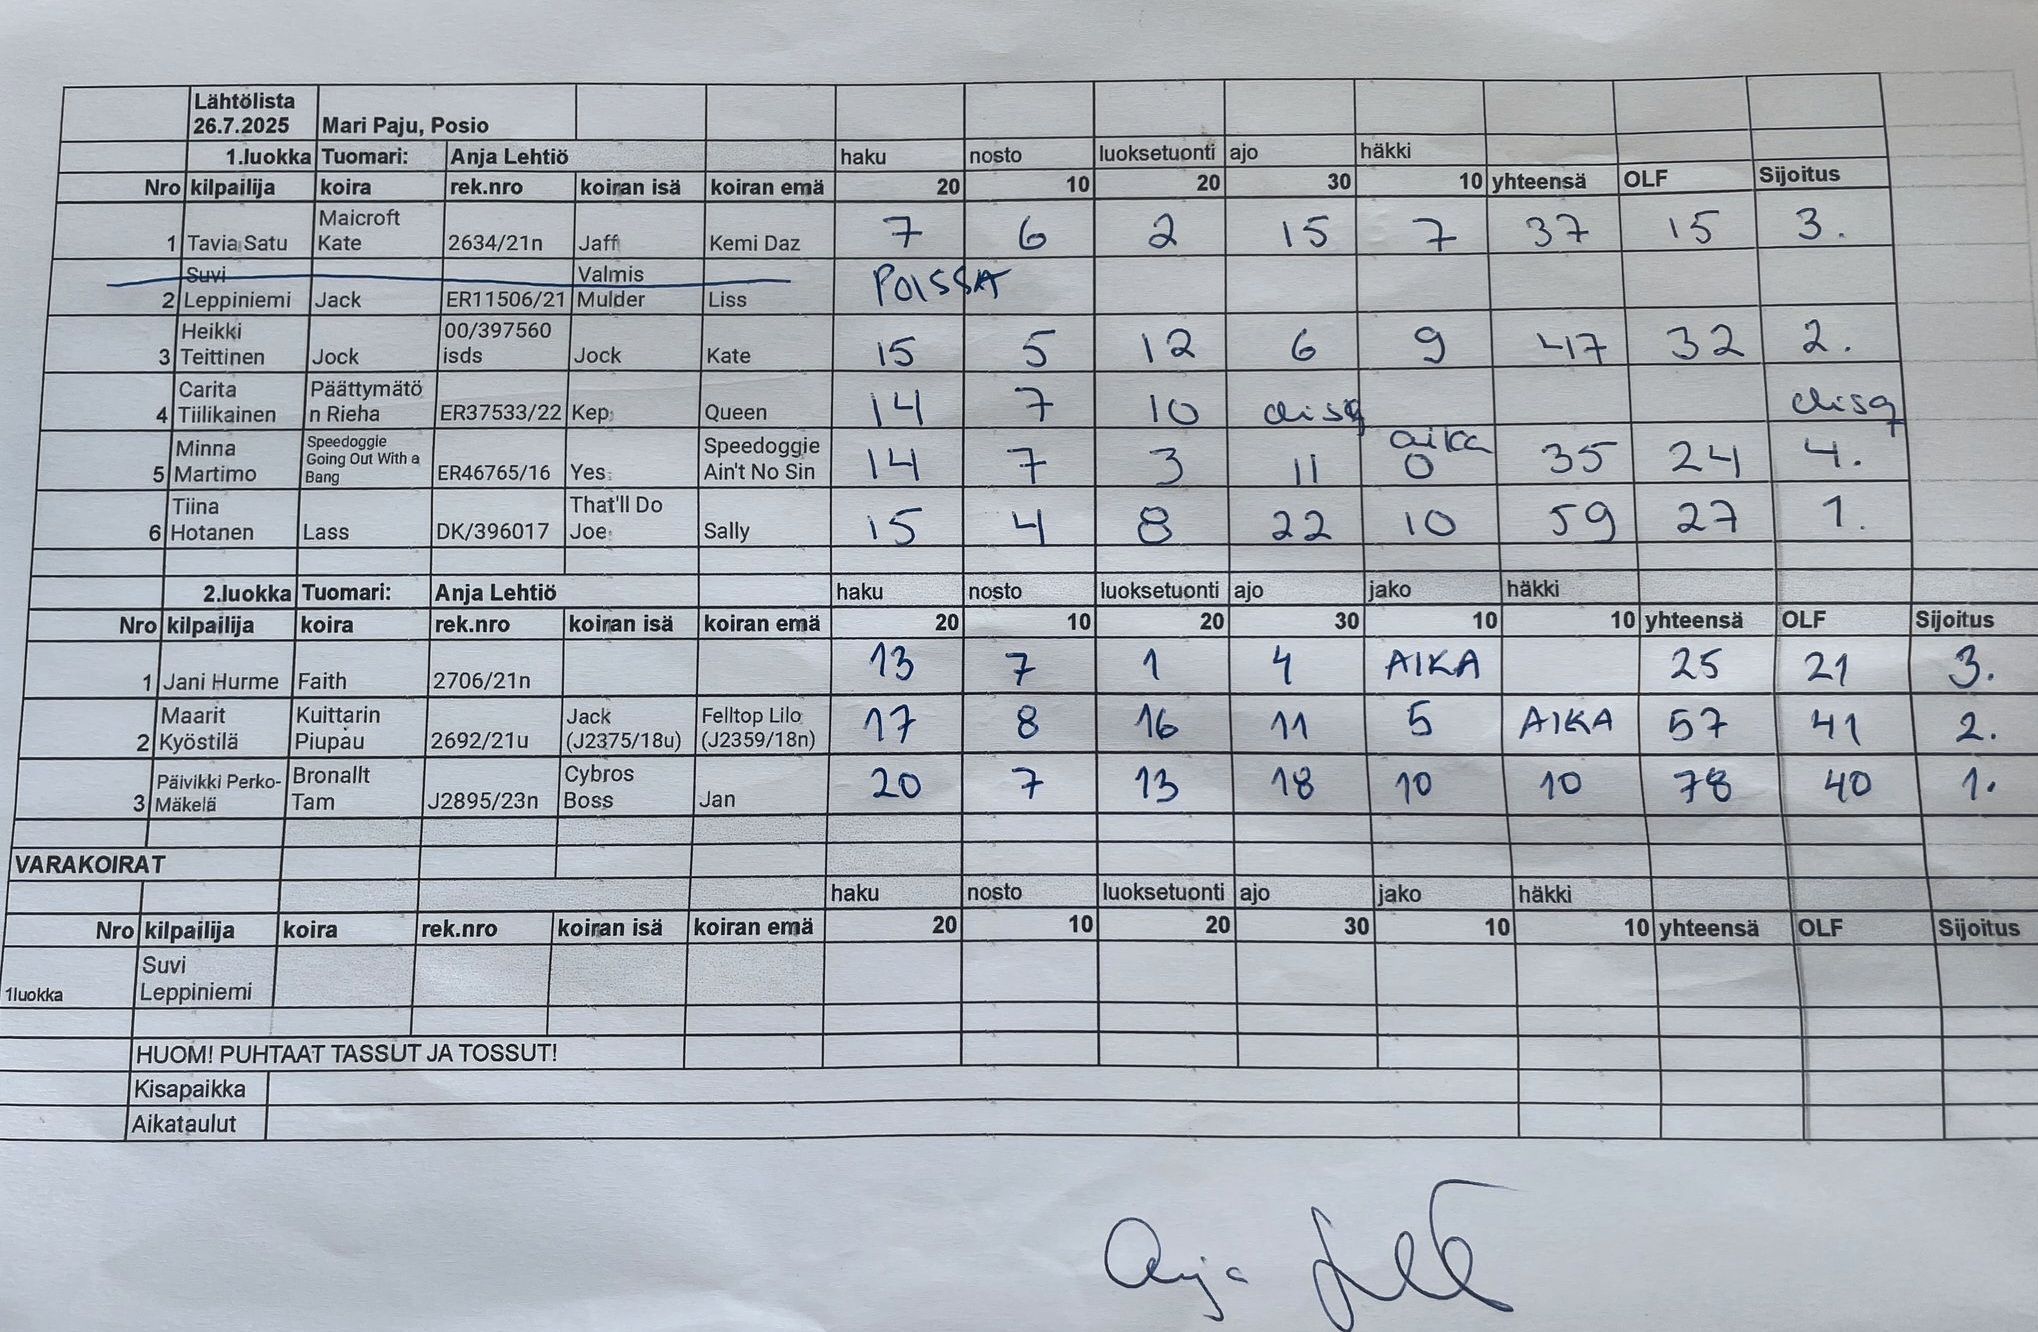 Lähtölista
26.7.2025 Mari Paju, Posio
1.luokka Tuomari: Anja Lehtiö haku nosto luoksetuonti ajo häkki
Nro kilpailija koira rek.nro koiran isä koiran emä 20 10 20 30 10 yhteensä OLF Sijoitus
Maicroft
1 Tavia Satu Kate 2634/21n Jaff Kemi Daz 7 6 2 15 7 37 15 3.
Suvi Valmis POISSA
2 Leppiniemi Jack ER11506/21 Mulder Liss
Heikki 00/397560
3 Teittinen Jock isds Jock Kate 15 5 12 6 9 47 32 2.
Carita Päättymätö
4 Tiilikainen n Rieha ER37533/22 Kep Queen 14 7 10 disq disq
Minna Speedoggie Going Out With a Bang Speedoggie aika
5 Martimo ER46765/16 Yes Ain't No Sin 14 7 3 11 0 35 24 4.
Tiina That'll Do
6 Hotanen Lass DK/396017 Joe Sally 15 4 8 22 10 59 27 1.
2.luokka Tuomari: Anja Lehtiö haku nosto luoksetuonti ajo jako häkki
Nro kilpailija koira rek.nro koiran isä koiran emä 20 10 20 30 10 10 yhteensä OLF Sijoitus
1 Jani Hurme Faith 2706/21n 13 7 1 4 AIKA 25 21 3.
Maarit Kuittarin Jack Felltop Lilo
2 Kyöstilä Piupau 2692/21u (J2375/18u) (J2359/18n) 17 8 16 11 5 AIKA 57 41 2.
Päivikki Perko- Bronallt Cybros
3 Mäkelä Tam J2895/23n Boss Jan 20 7 13 18 10 10 78 40 1.
VARAKOIRAT
haku nosto luoksetuonti ajo jako häkki
Nro kilpailija koira rek.nro koiran isä koiran emä 20 10 20 30 10 10 yhteensä OLF Sijoitus
Suvi
1luokka Leppiniemi
HUOM! PUHTAAT TASSUT JA TOSSUT!
Kisapaikka
Aikataulut
Anja